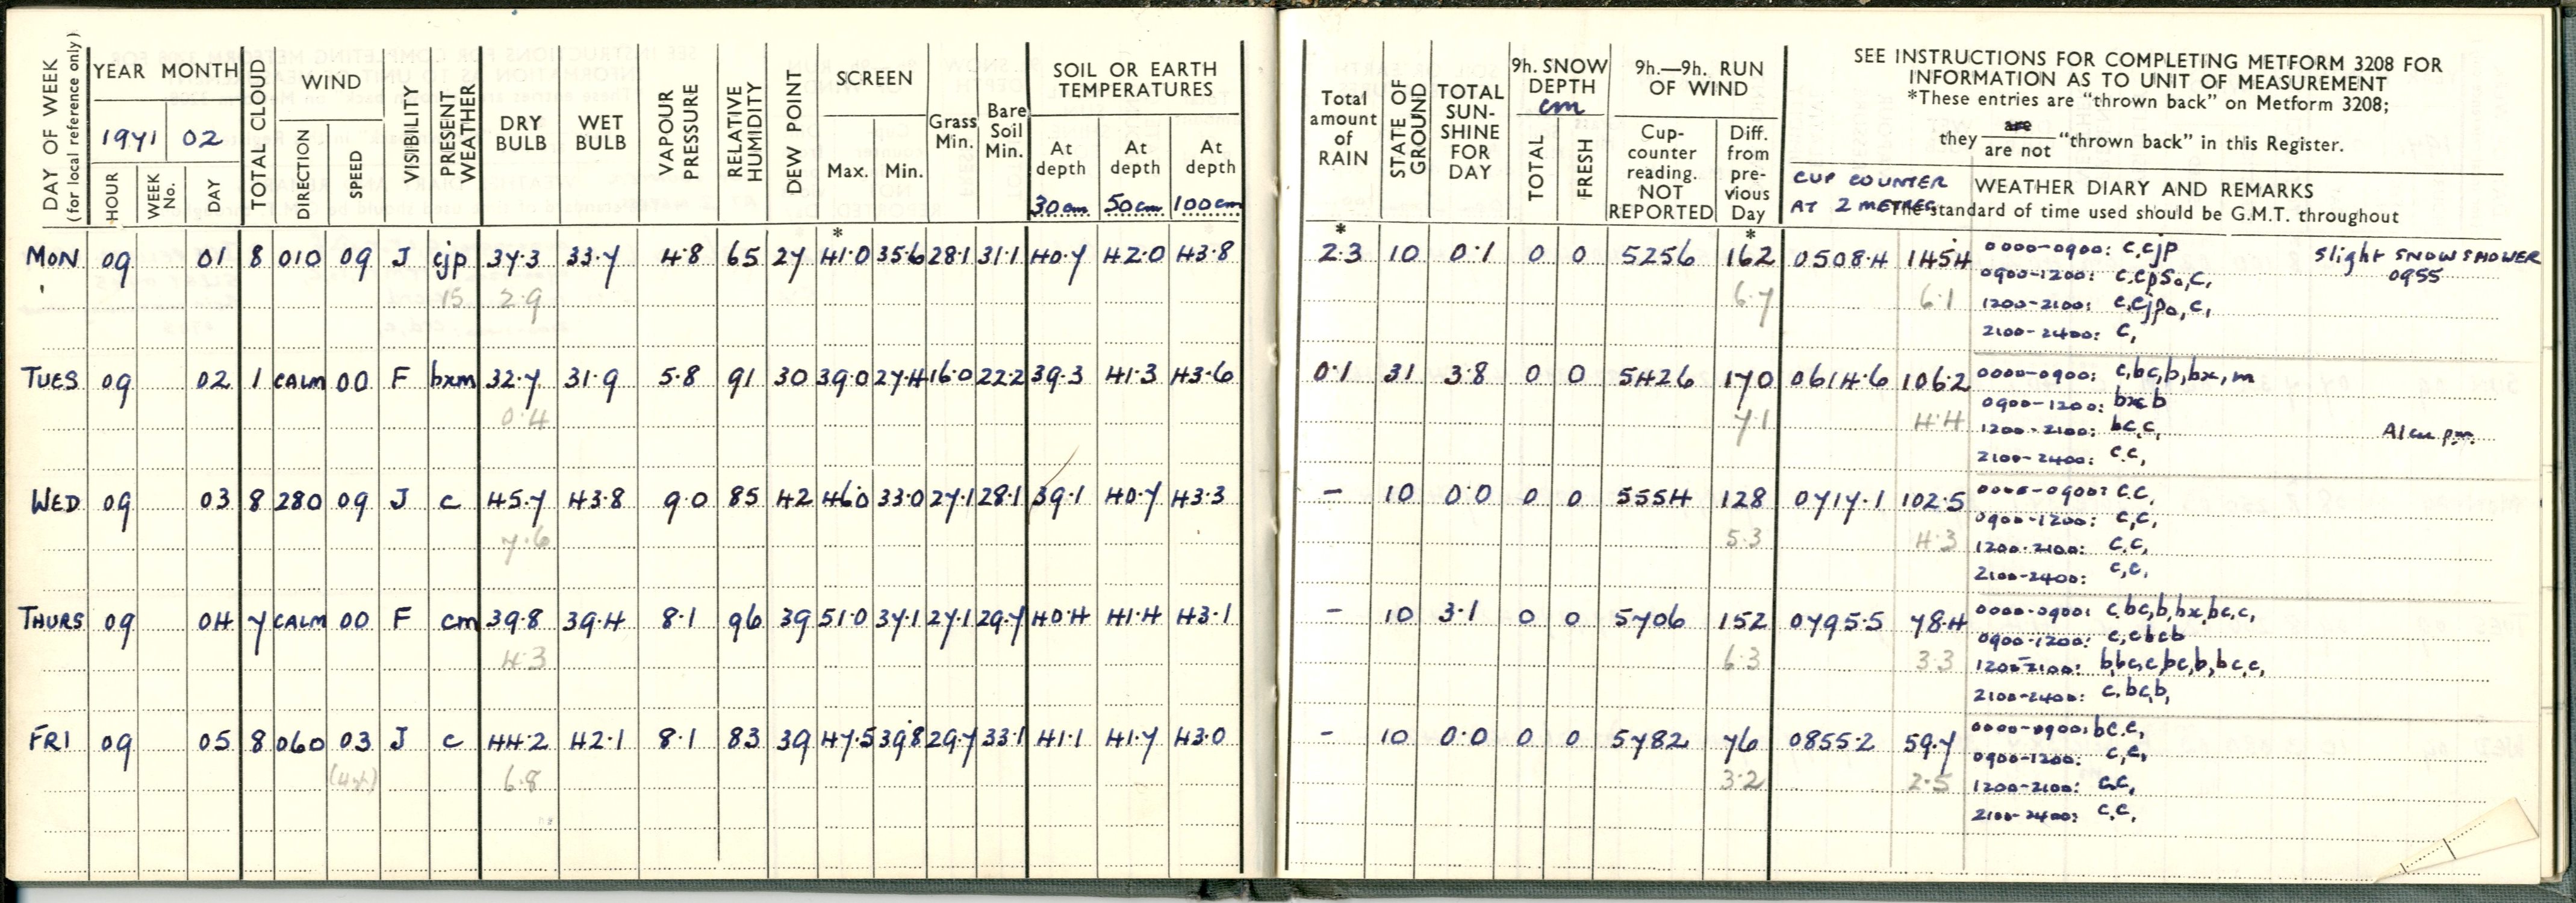 DAY OF WEEK
(for local reference only)
YEAR MONTH
1971 02
HOUR
WEEK No.
DAY
TOTAL CLOUD
WIND
DIRECTION
SPEED
VISIBILITY
PRESENT WEATHER
DRY BULB
WET BULB
VAPOUR PRESSURE
RELATIVE HUMIDITY
DEW POINT
SCREEN
Max. Min.
Grass Min.
Bare Soil Min.
SOIL OR EARTH TEMPERATURES
At depth 30 cm
At depth 50 cm
At depth 100 cm
MON 09 01 8 010 09 J cjp 37.3 33.7 4.8 65 27 *41.0 35.6 28.1 31.1 40.7 42.0 43.8
15 2.9
TUES 09 02 1 CALM 00 F bxm 32.7 31.9 5.8 91 30 39.0 27.4 16.0 22.2 39.3 41.3 43.6
0.4
WED 09 03 8 280 09 J c 45.7 43.8 9.0 85 42 46.0 33.0 27.1 28.1 39.1 40.7 43.3
7.6
THURS 09 04 7 CALM 00 F cm 39.8 39.4 8.1 96 39 51.0 37.1 27.1 29.7 40.4 41.4 43.1
4.3
FRI 09 05 8 060 03 J c 44.2 42.1 8.1 83 39 47.5 39.8 29.7 33.1 41.1 41.7 43.0
6.8
Total amount of RAIN
STATE OF GROUND
TOTAL SUN-SHINE FOR DAY
9h. SNOW DEPTH
cm
TOTAL
FRESH
9h.—9h. RUN OF WIND
Cup-counter reading. NOT REPORTED
Diff. from pre-vious Day
SEE INSTRUCTIONS FOR COMPLETING METFORM 3208 FOR
INFORMATION AS TO UNIT OF MEASUREMENT
*These entries are "thrown back" on Metform 3208;
they are / are not "thrown back" in this Register.
CUP COUNTER
AT 2 METRES
WEATHER DIARY AND REMARKS
The standard of time used should be G.M.T. throughout
*2.3 10 0.1 0 0 5256 *162 0508.4 145.4 0000-0900: c,cjp Slight SNOW SHOWER
0900-1200: c,cpso,c, 0955
6.7 6.1 1200-2100: c,cjpo,c,
2100-2400: c,
0.1 31 3.8 0 0 5426 170 0614.6 106.2 0000-0900: c,bc,b,bx,m
0900-1200: bxcb
7.1 4.4 1200-2100: bc,c, Alcu pm.
2100-2400: c.c,
- 10 0.0 0 0 5554 128 0717.1 102.5 0000-0900: c.c,
0900-1200: c,c,
5.3 4.3 1200-2100: c.c,
2100-2400: c,c,
- 10 3.1 0 0 5706 152 0795.5 78.4 0000-0900: c,bc,b,bx,bc,c,
0900-1200: c,cbcb
6.3 3.3 1200-2100: bbc,c,bc,b,bc,c,
2100-2400: c,bc,b,
- 10 0.0 0 0 5782 76 0855.2 59.7 0000-0900: bc.c,
0900-1200: c,c,
3.2 2.5 1200-2100: c.c,
2100-2400: c.c,